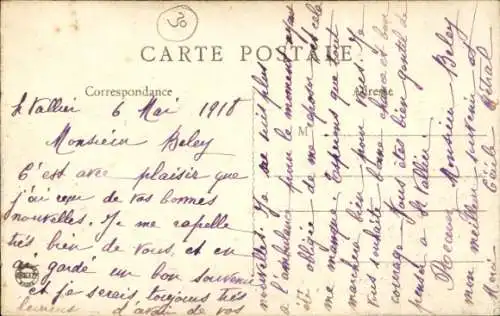 50
CARTE POSTALE
Correspondance
Adresse
M
St Vallier 6 Mai 1918
Monsieur Beley
C'est avec plaisir que
j'ai reçu de vos bonnes
nouvelles. Je me rappelle
très bien de vous, et en
ai gardé un bon souvenir
et je serais toujours très
heureuse d'avoir de vos
nouvelles. Je ne suis plus
à l'ambulance pour le moment ayant
été obligée de me reposer mais cela
me manque. Espérons que tout
marchera bien pour vous. Je
vous souhaite bonne chance et bon
courage. Vous êtes bien gentil de
penser à St Vallier.
Recevez Monsieur Beley
mon meilleur souvenir et
Cécile